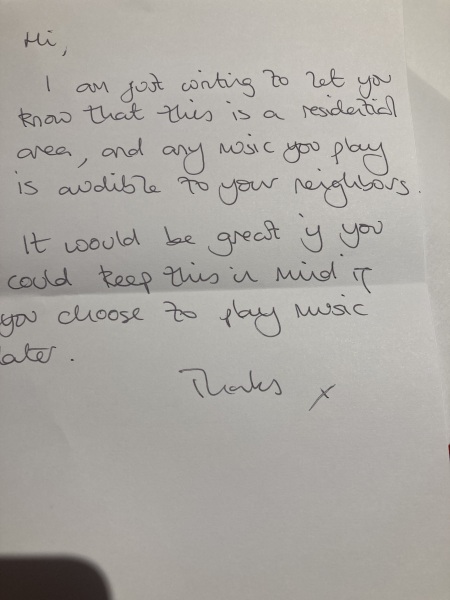 Hi,
I am just writing to let you
know that this is a residential
area, and any music you play
is audible to your neighbors.
It would be great if you
could keep this in mind if
you choose to play music
later.
Thanks x